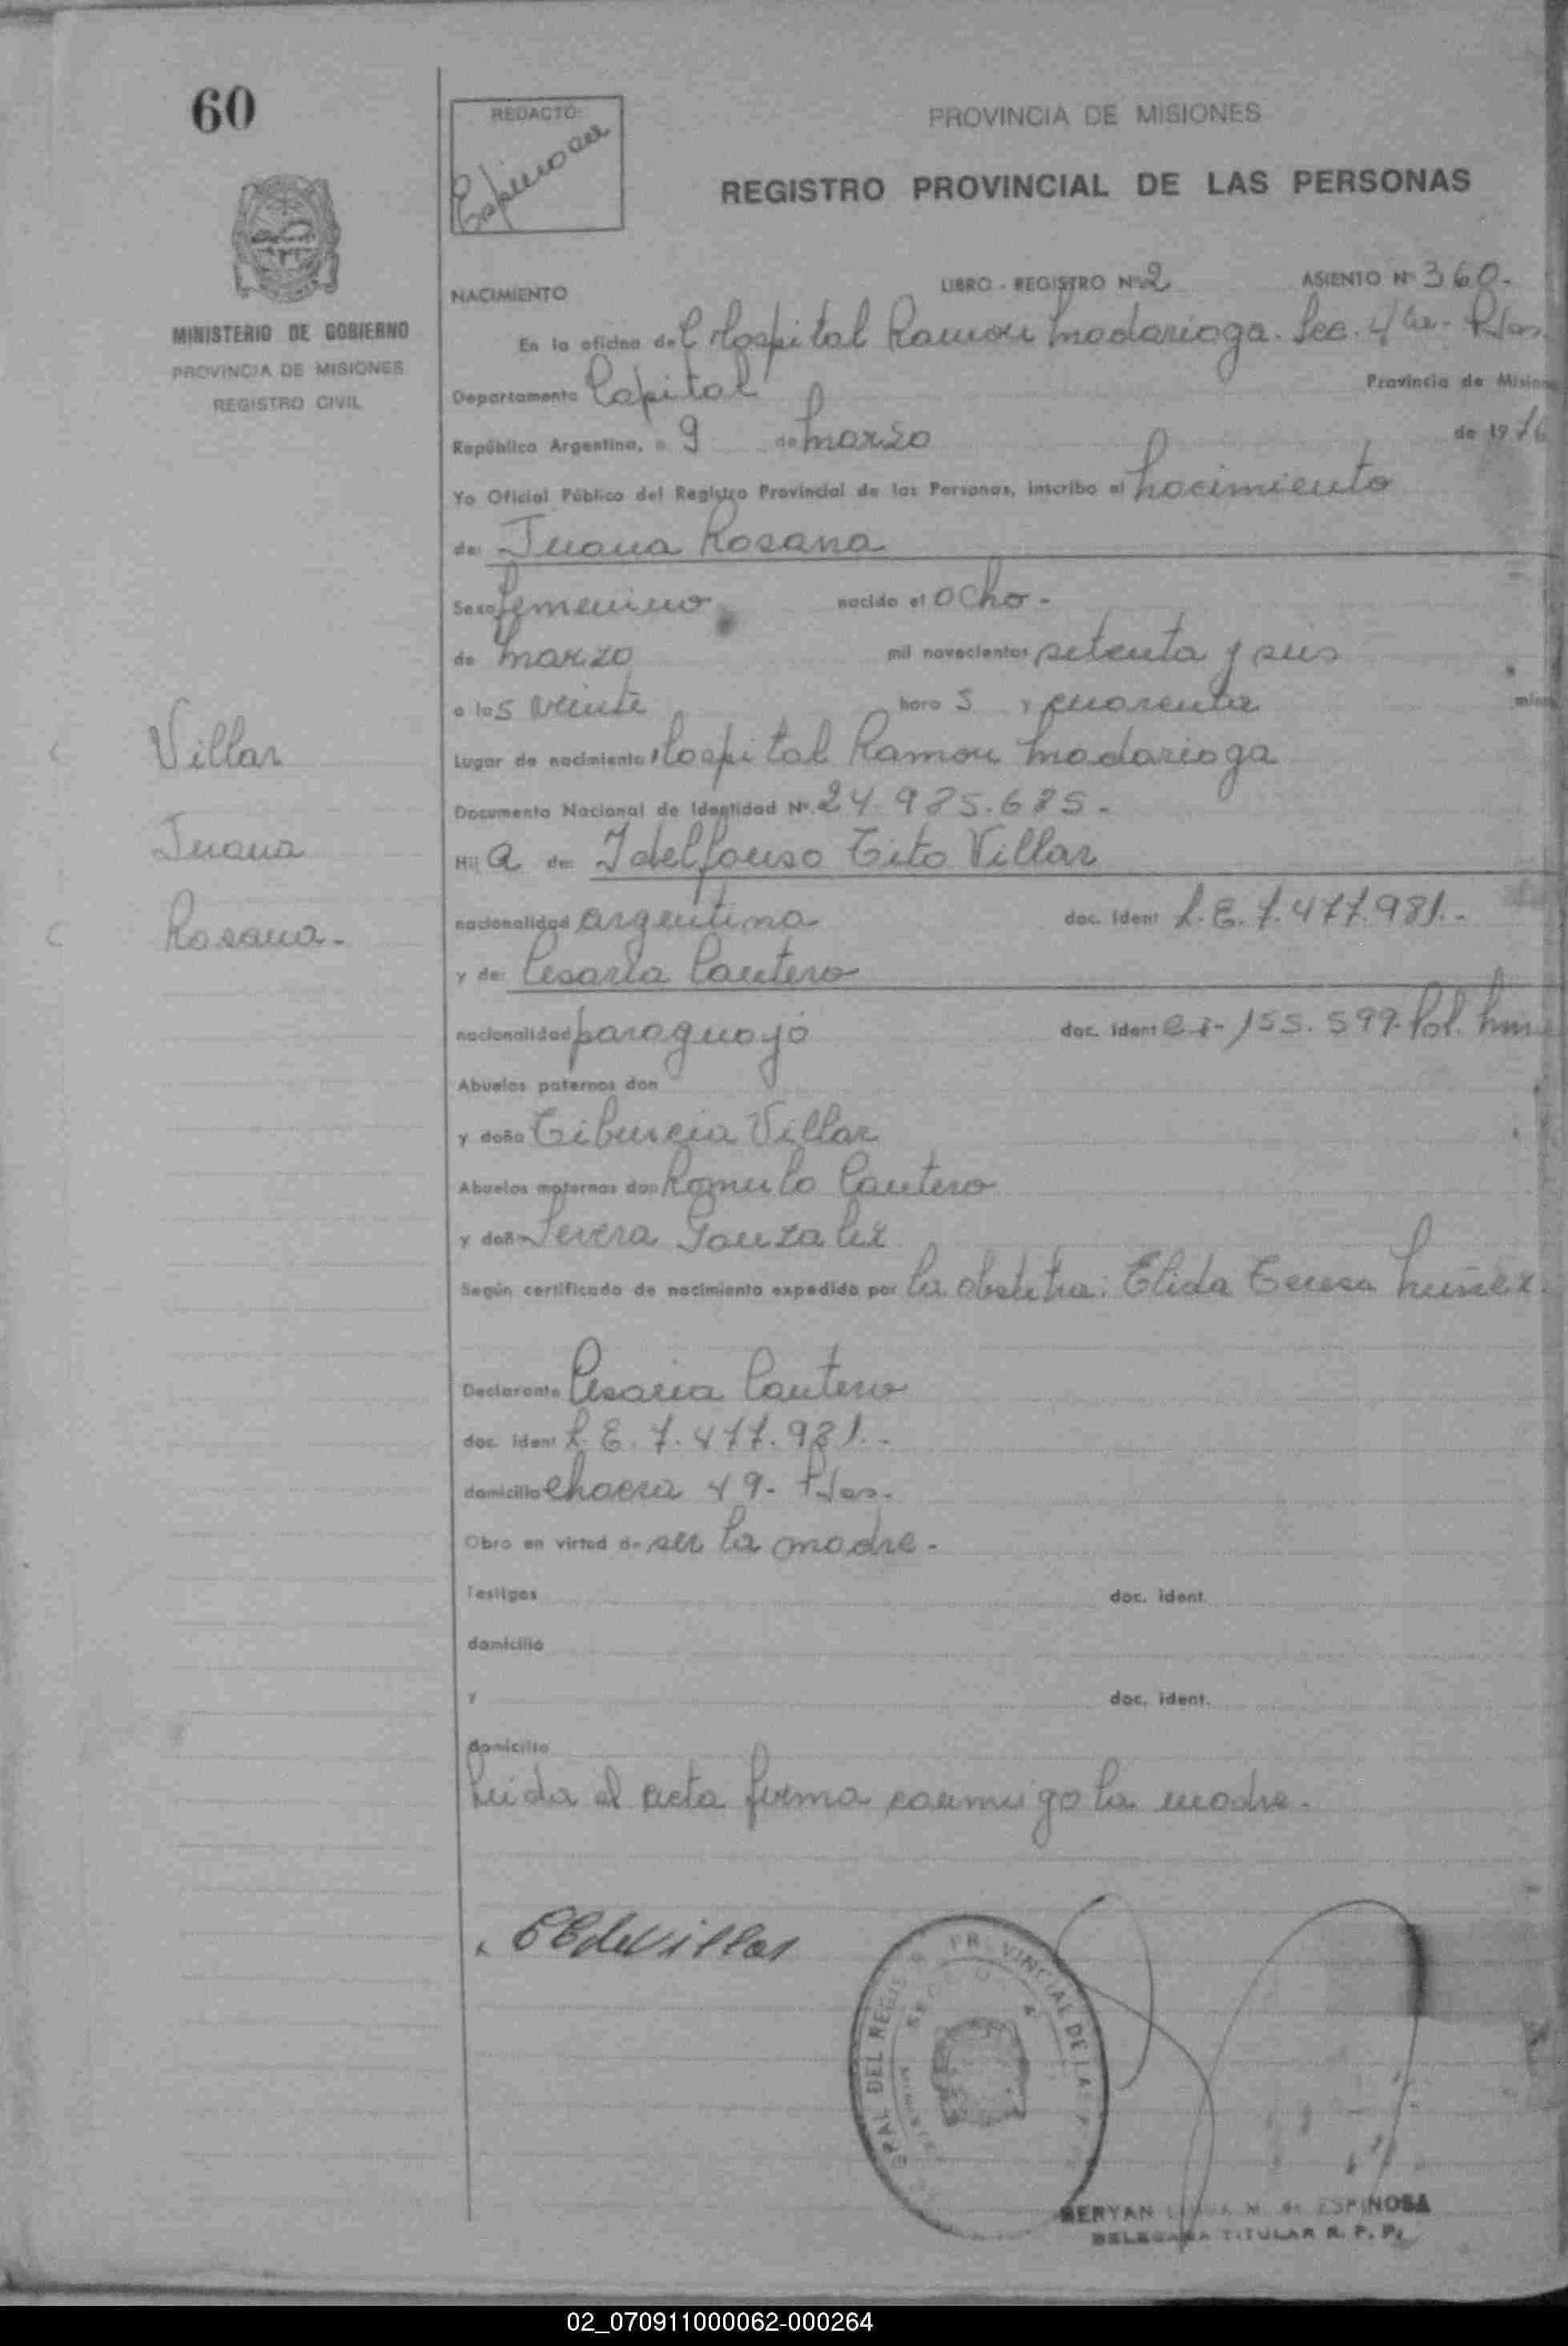 60
REDACTÓ:
PROVINCIA DE MISIONES
REGISTRO PROVINCIAL DE LAS PERSONAS
MINISTERIO DE GOBIERNO
PROVINCIA DE MISIONES
REGISTRO CIVIL
NACIMIENTO LIBRO - REGISTRO Nº 2 ASIENTO Nº 360.-
En la oficina del Hospital Ramon Madariaga. Sec. 4ta. Pdas.
Departamento Capital Provincia de Misiones
República Argentina, a 9 de Marzo de 1976
Yo Oficial Público del Registro Provincial de las Personas, inscribo el Nacimiento
de: Juana Rosana
Sexo femenino nacido el ocho -
de Marzo mil novecientos setenta y seis
a las veinte horas y cuarenta
Lugar de nacimiento Hospital Ramon Madariaga
Documento Nacional de Identidad Nº 24.985.685.-
Hij a de: Idelfonso Tito Villar
nacionalidad argentina doc. ident L.E. 7.477.981.-
y de: Cesaria Cantero
nacionalidad paraguayo doc. ident C.I. 155.599. Pol. Mnes
Abuelos paternos don
y doña Tiburcia Villar
Abuelos maternos don Romulo Cantero
y doña Severa Gonzalez
Según certificado de nacimiento expedido por la obstetra: Elida Teresa Nuñez.
Declarante Cesaria Cantero
doc. ident L.E. 7.477.981.-
domicilio chacra 49- Pdas.
Obra en virtud de ser la madre.
Testigos doc. ident.
domicilio
y doc. ident.
domicilio
Leida el acta firma conmigo la madre.
Villar
Juana
Rosana.
de Villar
DEL REGIS PROVINCIAL DE LAS
ESPINOSA
DELEGADA TITULAR R. P. P.
02_070911000062-000264